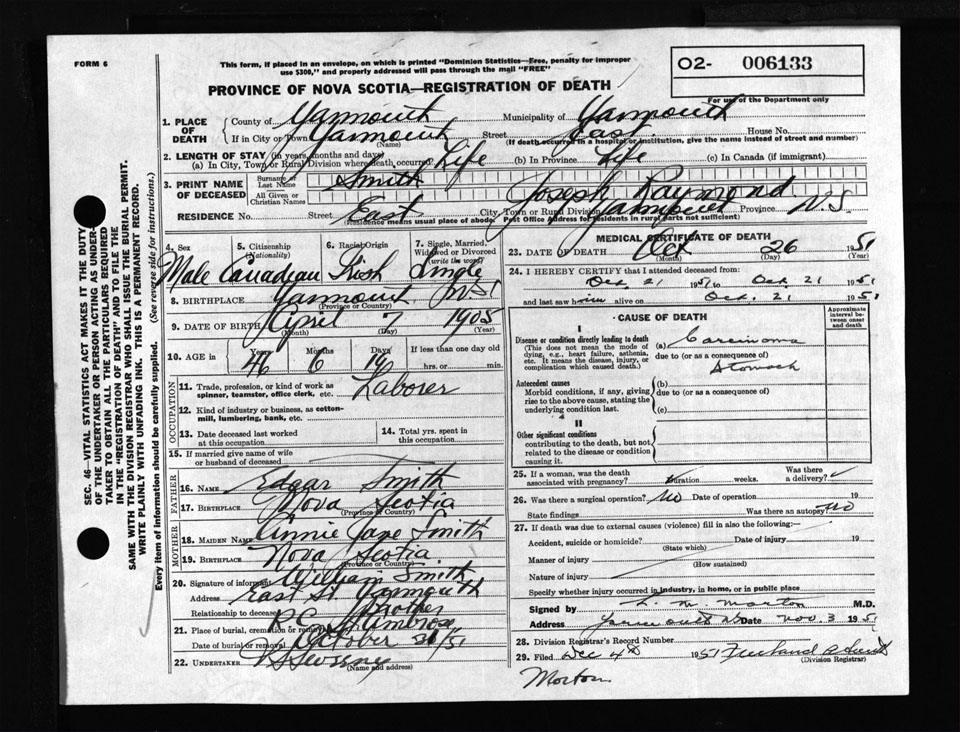 FORM 6
This form, if placed in an envelope, on which is printed "Dominion Statistics—Free, penalty for improper
use $300," and properly addressed will pass through the mail "FREE"
02- 006133
For use of the Department only
PROVINCE OF NOVA SCOTIA—REGISTRATION OF DEATH
1. PLACE OF DEATH
County of Yarmouth Municipality of Yarmouth
If in City or Town Yarmouth (Name) Street East House No.
(If death occurred in a hospital or institution, give the name instead of street and number)
2. LENGTH OF STAY (in years, months and days)
(a) In City, Town or Rural Division where death occurred Life (b) In Province Life (c) In Canada (if immigrant)
3. PRINT NAME OF DECEASED
Surname or Last Name Smith
All Given or Christian Names Joseph Raymond
RESIDENCE No. Street East City, Town or Rural Division Yarmouth Province N.S.
(Residence means usual place of abode. Post Office Address for residents in rural parts not sufficient)
4. Sex
Male
5. Citizenship (Nationality)
Canadian
6. Racial Origin
Irish
7. Single, Married, Widowed or Divorced (write the word)
Single
8. BIRTHPLACE Yarmouth N.S.
(Province or Country)
9. DATE OF BIRTH April 7 1905
(Month) (Day) (Year)
10. AGE in Years Months Days If less than one day old
46 6 19 hrs. or min.
OCCUPATION
11. Trade, profession, or kind of work as
spinner, teamster, office clerk, etc. Laborer
12. Kind of industry or business, as cotton-
mill, lumbering, bank, etc.
13. Date deceased last worked
at this occupation
14. Total yrs. spent in
this occupation
15. If married give name of wife
or husband of deceased
FATHER
16. NAME Edgar Smith
17. BIRTHPLACE Nova Scotia
(Province or Country)
MOTHER
18. MAIDEN NAME Annie Jane Smith
19. BIRTHPLACE Nova Scotia
(Province or Country)
20. Signature of informant William Smith
Address East St. Yarmouth
Relationship to deceased Brother
21. Place of burial, cremation or removal R.C. Ambrose
Date of burial or removal October 51
22. UNDERTAKER
(Name and address)
MEDICAL CERTIFICATE OF DEATH
23. DATE OF DEATH Oct 26 1951
(Month) (Day) (Year)
24. I HEREBY CERTIFY that I attended deceased from:
Oct. 21 1951 to Oct. 21 1951
and last saw h alive on Oct. 21 1951
CAUSE OF DEATH
Approximate interval between onset and death
I
Disease or condition directly leading to death
(This does not mean the mode of
dying, e.g., heart failure, asthenia,
etc. It means the disease, injury, or
complication which caused death.)
(a) Carcinoma
due to (or as a consequence of)
Stomach
Antecedent causes
Morbid conditions, if any, giving
rise to the above cause, stating the
underlying condition last.
(b)
due to (or as a consequence of)
(c)
II
Other significant conditions
contributing to the death, but not
related to the disease or condition
causing it.
25. If a woman, was the death
associated with pregnancy? Duration weeks. Was there a delivery?
26. Was there a surgical operation? No Date of operation 19
State findings Was there an autopsy? No
27. If death was due to external causes (violence) fill in also the following:—
Accident, suicide or homicide? Date of injury 19
(State which)
Manner of injury
(How sustained)
Nature of injury
Specify whether injury occurred in industry, in home, or in public place
Signed by L. M. Morton M.D.
Address Yarmouth NS Date Nov. 3 1951
28. Division Registrar's Record Number
29. Filed Dec 4th 1951
(Division Registrar)
Morton
SEC. 46—VITAL STATISTICS ACT MAKES IT THE DUTY
OF THE UNDERTAKER OR PERSON ACTING AS UNDER-
TAKER TO OBTAIN ALL THE PARTICULARS REQUIRED
IN THE "REGISTRATION OF DEATH" AND TO FILE THE
SAME WITH THE DIVISION REGISTRAR WHO SHALL ISSUE THE BURIAL PERMIT.
WRITE PLAINLY WITH UNFADING INK. THIS IS A PERMANENT RECORD.
Every item of information should be carefully supplied. (See reverse side for instructions.)